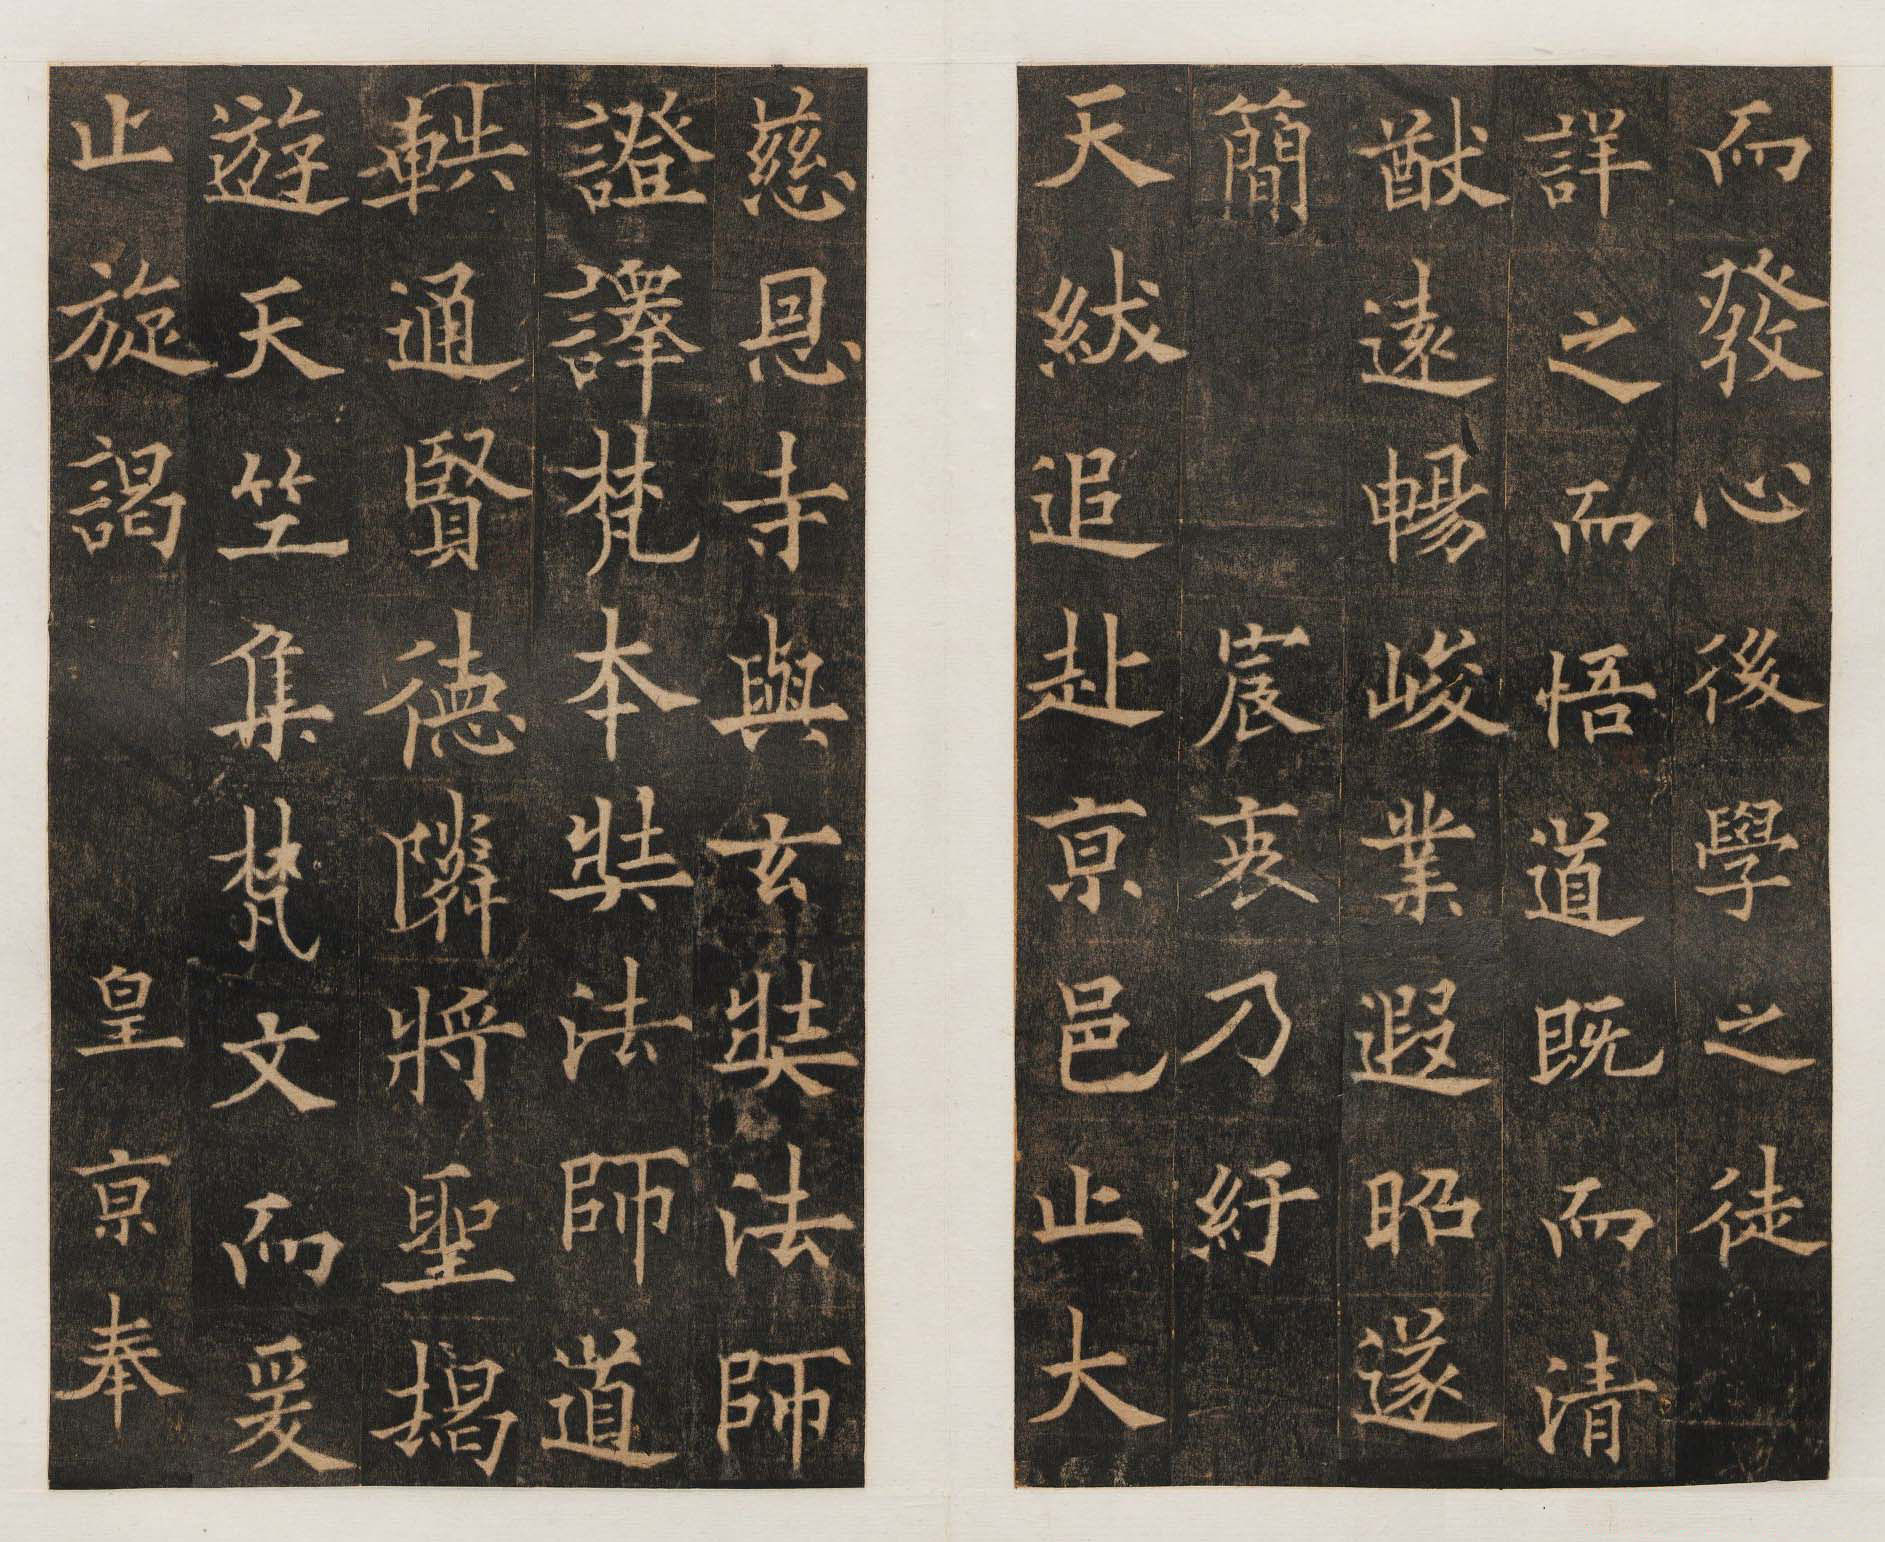 而發心後學之徒
詳之而悟道既而清
猷遠暢峻業遐昭遂
簡宸衷乃紆
天紱追赴亰邑止大
慈恩寺與玄奘法師
證譯梵本奘法師道
軼通賢徳隣將聖揭
遊天竺集梵文而爰
止旋謁皇亰奉